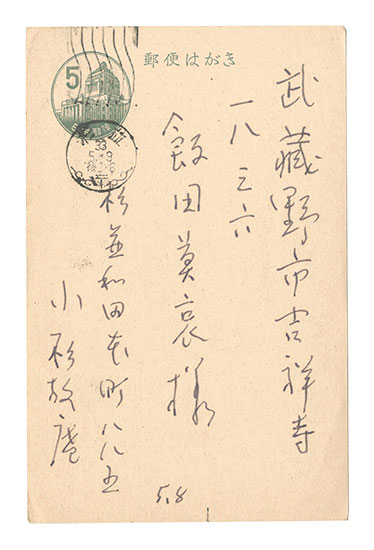 郵便はがき
5
33
5.9
武藏野市吉祥寺
一八三六
飯田莫哀様
杉並和田本町八八五
小杉放庵
5.8